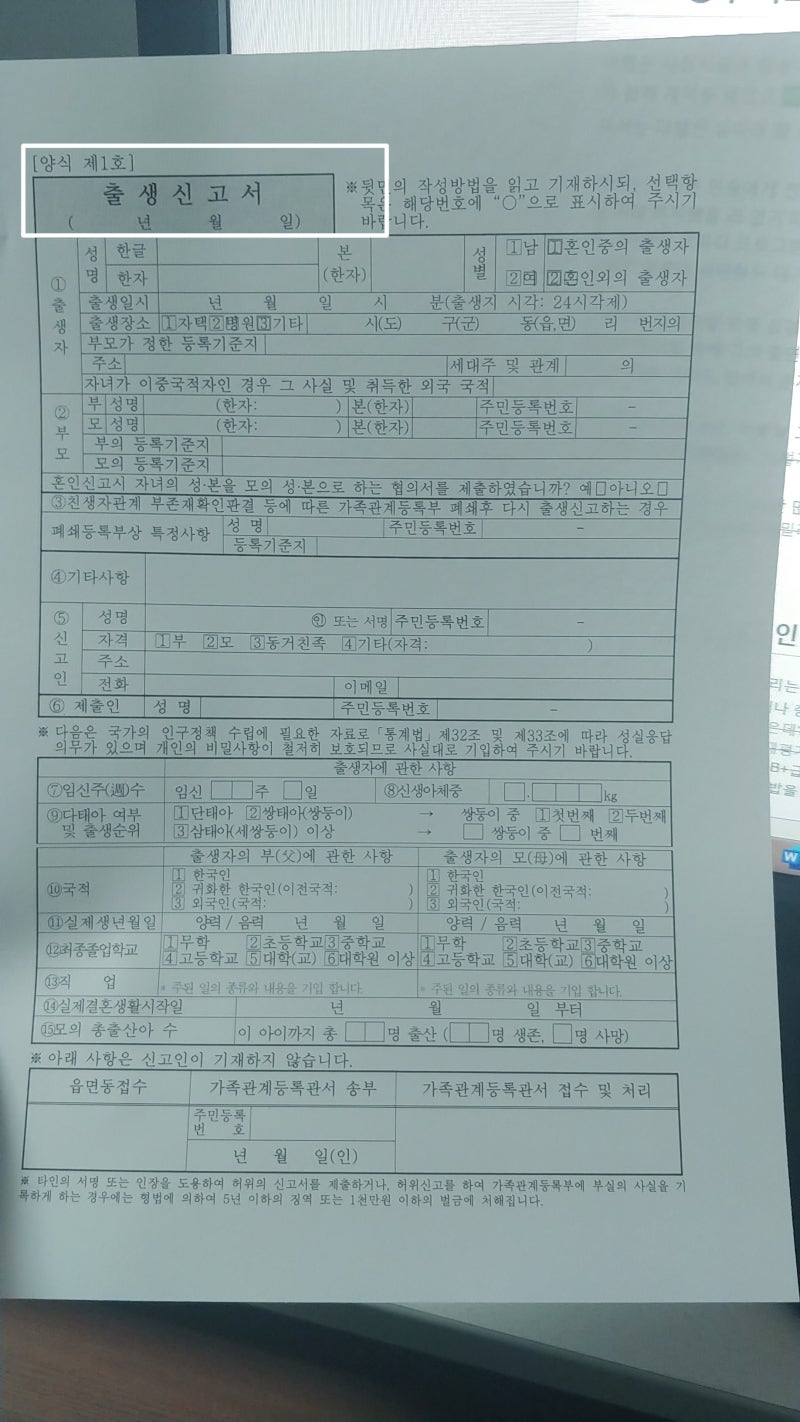 [양식 제1호]
출 생 신 고 서
( 년 월 일)
※뒷면의 작성방법을 읽고 기재하시되, 선택항
목은 해당번호에 "○"으로 표시하여 주시기
바랍니다.
① 출 생 자
성 명 한글 본 (한자) 성 별 1남 1혼인중의 출생자
한자 2여 2혼인외의 출생자
출생일시 년 월 일 시 분(출생지 시각: 24시각제)
출생장소 1자택2병원3기타 시(도) 구(군) 동(읍,면) 리 번지의
부모가 정한 등록기준지
주소 세대주 및 관계 의
자녀가 이중국적자인 경우 그 사실 및 취득한 외국 국적
② 부 모
부 성명 (한자: ) 본(한자) 주민등록번호 -
모 성명 (한자: ) 본(한자) 주민등록번호 -
부의 등록기준지
모의 등록기준지
혼인신고시 자녀의 성·본을 모의 성·본으로 하는 협의서를 제출하였습니까? 예□아니오□
③친생자관계 부존재확인판결 등에 따른 가족관계등록부 폐쇄후 다시 출생신고하는 경우
폐쇄등록부상 특정사항 성 명 주민등록번호 -
등록기준지
④기타사항
⑤ 신 고 인
성명 ㊞ 또는 서명 주민등록번호 -
자격 1부 2모 3동거친족 4기타(자격: )
주소
전화 이메일
⑥ 제출인 성 명 주민등록번호 -
※ 다음은 국가의 인구정책 수립에 필요한 자료로「통계법」제32조 및 제33조에 따라 성실응답
의무가 있으며 개인의 비밀사항이 철저히 보호되므로 사실대로 기입하여 주시기 바랍니다.
출생자에 관한 사항
⑦임신주(週)수 임신 □□주 □일 ⑧신생아체중 □.□□□kg
⑨다태아 여부 및 출생순위 1단태아 2쌍태아(쌍둥이) → 쌍둥이 중 1첫번째 2두번째
3삼태아(세쌍둥이) 이상 → □ 쌍둥이 중 □ 번째
출생자의 부(父)에 관한 사항 출생자의 모(母)에 관한 사항
⑩국적
1 한국인 1 한국인
2 귀화한 한국인(이전국적: ) 2 귀화한 한국인(이전국적: )
3 외국인(국적: ) 3 외국인(국적: )
⑪실제생년월일 양력 / 음력 년 월 일 양력 / 음력 년 월 일
⑫최종졸업학교 1무학 2초등학교3중학교 1무학 2초등학교3중학교
4고등학교 5대학(교) 6대학원 이상 4고등학교 5대학(교) 6대학원 이상
⑬직 업 * 주된 일의 종류와 내용을 기입 합니다. * 주된 일의 종류와 내용을 기입 합니다.
⑭실제결혼생활시작일 년 월 일 부터
⑮모의 총출산아 수 이 아이까지 총 □□명 출산 (□□명 생존, □명 사망)
※ 아래 사항은 신고인이 기재하지 않습니다.
읍면동접수 가족관계등록관서 송부 가족관계등록관서 접수 및 처리
주민등록
번 호
년 월 일(인)
※ 타인의 서명 또는 인장을 도용하여 허위의 신고서를 제출하거나, 허위신고를 하여 가족관계등록부에 부실의 사실을 기
록하게 하는 경우에는 형법에 의하여 5년 이하의 징역 또는 1천만원 이하의 벌금에 처해집니다.